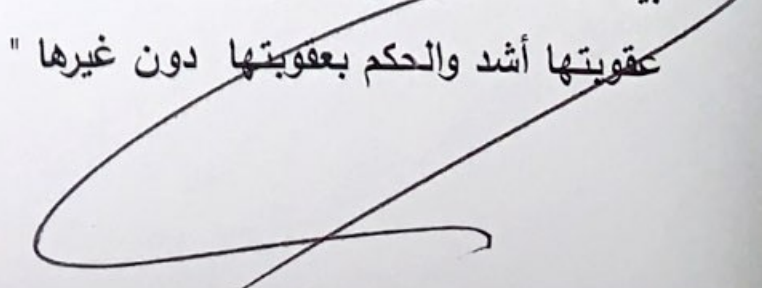 عقوبتها أشد والحكم بعقوبتها دون غيرها "